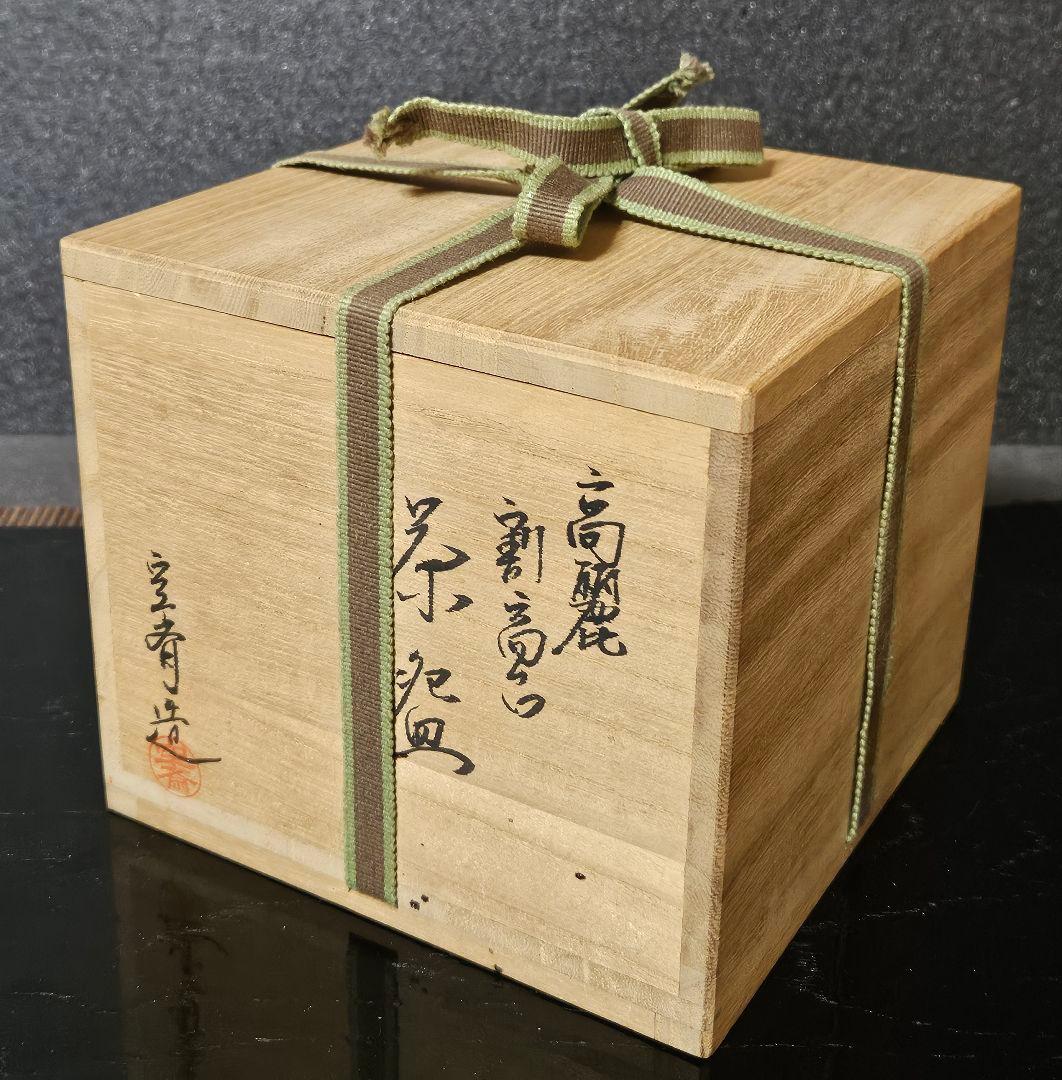 高麗
割高台
茶碗
造